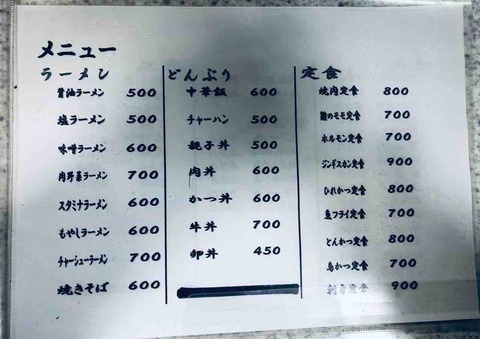 メニュー
ラーメン
醤油ラーメン 500
塩ラーメン 500
味噌ラーメン 600
肉野菜ラーメン 700
スタミナラーメン 600
もやしラーメン 600
チャーシューラーメン 700
焼きそば 600
どんぶり
中華飯 600
チャーハン 500
親子丼 500
肉丼 600
かつ丼 600
牛丼 700
卵丼 450
定食
焼肉定食 800
鶏のモモ定食 700
ホルモン定食 700
ジンギスカン定食 900
ひれかつ定食 800
魚フライ定食 700
とんかつ定食 800
鳥かつ定食 700
刺身定食 900